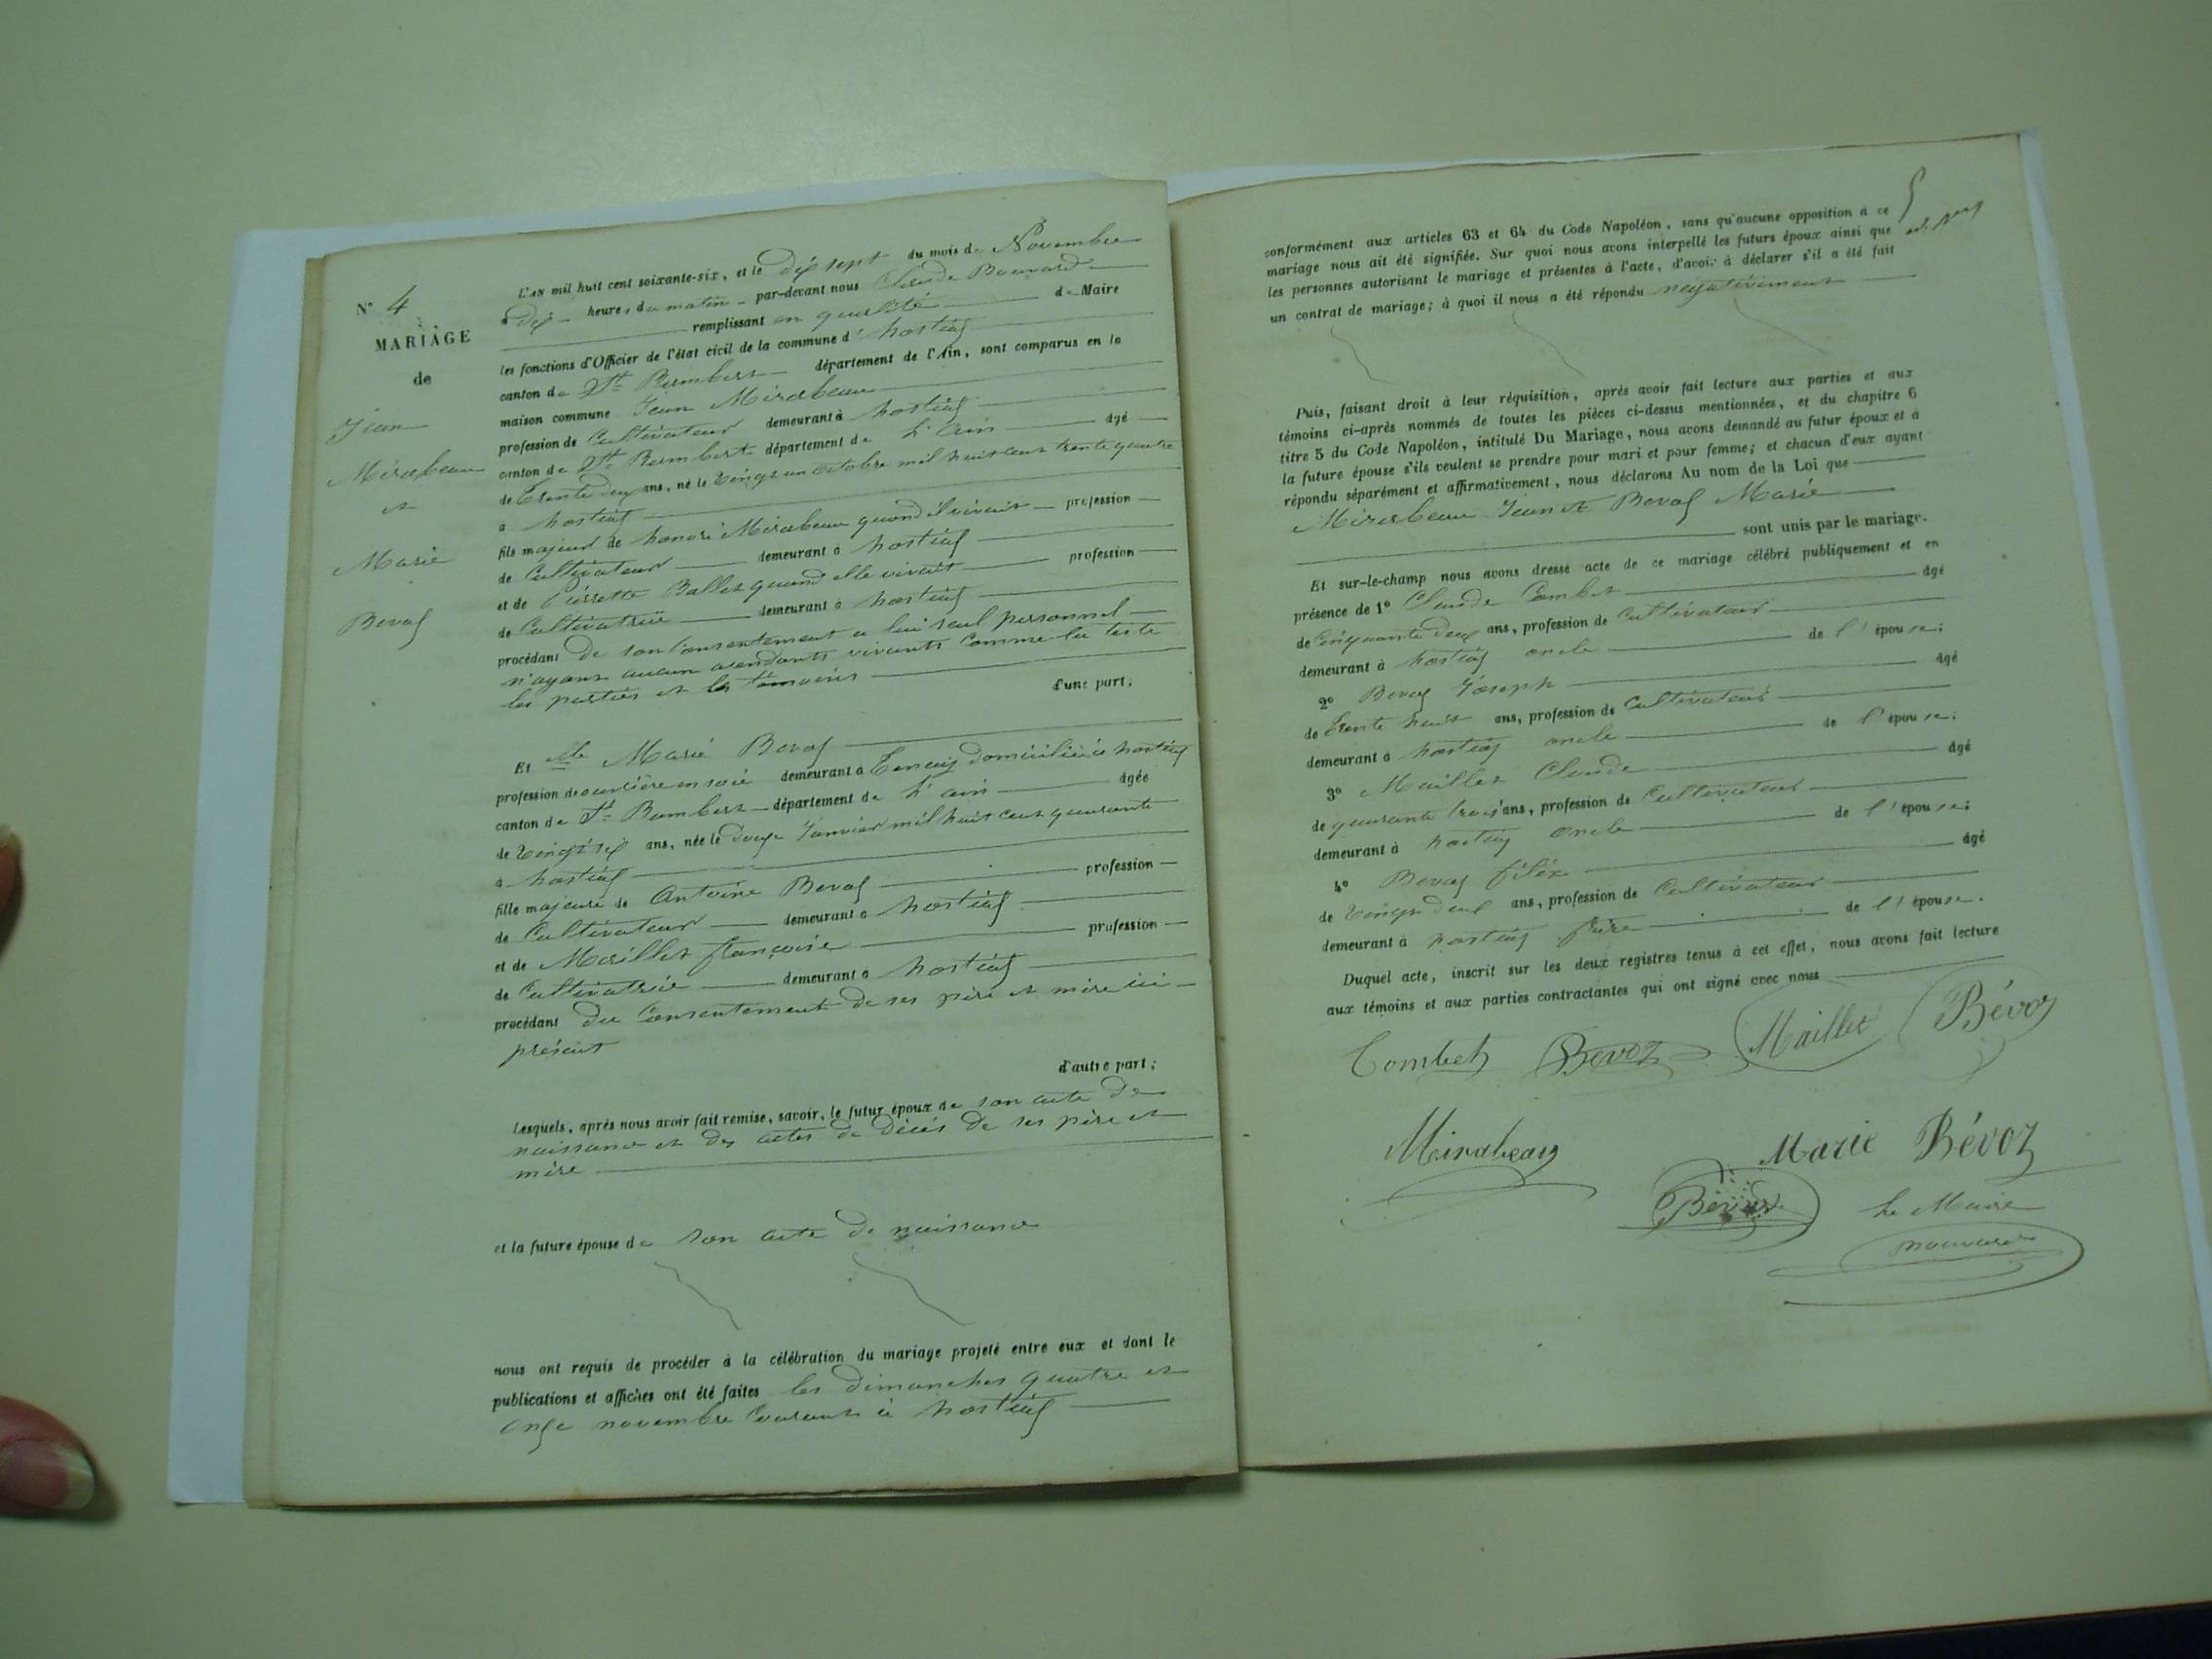 N° 4
MARIAGE
de
Jean
Mirabeau
et
Marie
Bevoz
L'AN mil huit cent soixante-six, et le dix sept du mois de Novembre
à dix heures du matin par-devant nous Claude Bonnard
remplissant en qualité de Maire
les fonctions d'Officier de l'état civil de la commune d' hostiaz
canton de St Rambert département de l'Ain, sont comparus en la
maison commune Jean Mirabeau
profession de Cultivateur demeurant à hostiaz
canton de St Rambert département de L'ain âgé
de trente deux ans, né le vingt un octobre mil huit cent trente quatre
à hostiaz
fils majeur de honoré Mirabeau quand il vivait profession
de Cultivateur demeurant à hostiaz
et de Pierrette Ballet quand elle vivait profession
de Cultivatrice demeurant à hostiaz
procédant de son Consentement a lui seul personnel
n'ayant aucun asendants vivants Comme la teste
les parties et les témoins d'une part;
Et Mlle Marie Bevoz
profession de ouvrière en soie demeurant à Tenay domiciliée à hostiaz
canton de St Rambert département de L'ain âgée
de vingt six ans, née le douze Janvier mil huit cent quarante
à hostiaz
fille majeure de Antoine Bevoz profession
de Cultivateur demeurant à hostiaz
et de Maillet françoise profession
de Cultivatrice demeurant à hostiaz
procédant du Consentement de ses père et mère ici
présent
d'autre part;
Lesquels, après nous avoir fait remise, savoir, le futur époux de son acte de
naissance et des actes de décès de ses père et
mère
et la future épouse de son acte de naissance
nous ont requis de procéder à la célébration du mariage projeté entre eux et dont le
publications et affiches ont été faites les dimanches quatre et
onze novembre Courant à hostiaz
5
conformément aux articles 63 et 64 du Code Napoléon, sans qu'aucune opposition à ce
mariage nous ait été signifiée. Sur quoi nous avons interpellé les futurs époux ainsi que
les personnes autorisant le mariage et présentes à l'acte, d'avoir à déclarer s'il a été fait
un contrat de mariage; à quoi il nous a été répondu négativement
Puis, faisant droit à leur réquisition, après avoir fait lecture aux parties et aux
témoins ci-après nommés de toutes les pièces ci-dessus mentionnées, et du chapitre 6
titre 5 du Code Napoléon, intitulé Du Mariage, nous avons demandé au futur époux et à
la future épouse s'ils veulent se prendre pour mari et pour femme; et chacun d'eux ayant
répondu séparément et affirmativement, nous déclarons Au nom de la Loi que
Mirabeau Jean et Bevoz Marie
sont unis par le mariage.
Et sur-le-champ nous avons dressé acte de ce mariage célébré publiquement et en
présence de 1° Claude Combet âgé
de Cinquante deux ans, profession de Cultivateur
demeurant à hostiaz oncle de l'épouse;
2° Bevoz Joseph âgé
de trente huit ans, profession de Cultivateur
demeurant à hostiaz oncle de l'épouse;
3° Maillet Claude âgé
de quarante trois ans, profession de Cultivateur
demeurant à hostiaz oncle de l'épouse;
4° Bevoz félix âgé
de vingt deux ans, profession de Cultivateur
demeurant à hostiaz frère de l'épouse.
Duquel acte, inscrit sur les deux registres tenus à cet effet, nous avons fait lecture
aux témoins et aux parties contractantes qui ont signé avec nous
Combet Bevoz Maillet Bévoz
Mirabeau Marie Bévoz
Bévoz Le Maire
Bonnard